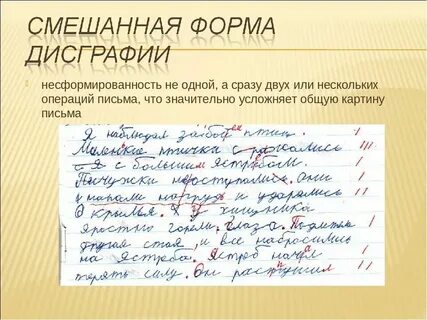 СМЕШАННАЯ ФОРМА
ДИСГРАФИИ
несформированность не одной, а сразу двух или нескольких
операций письма, что значительно усложняет общую картину
письма
Я наблюдал за птиц.
Маленкие птички с
я с большим ястребом.
Пичужки они
и ударялись
крылья. У хищника
яростно глаза.
другая стая, и все набросились
на ястреба. Ястреб начал
терять силу. Он